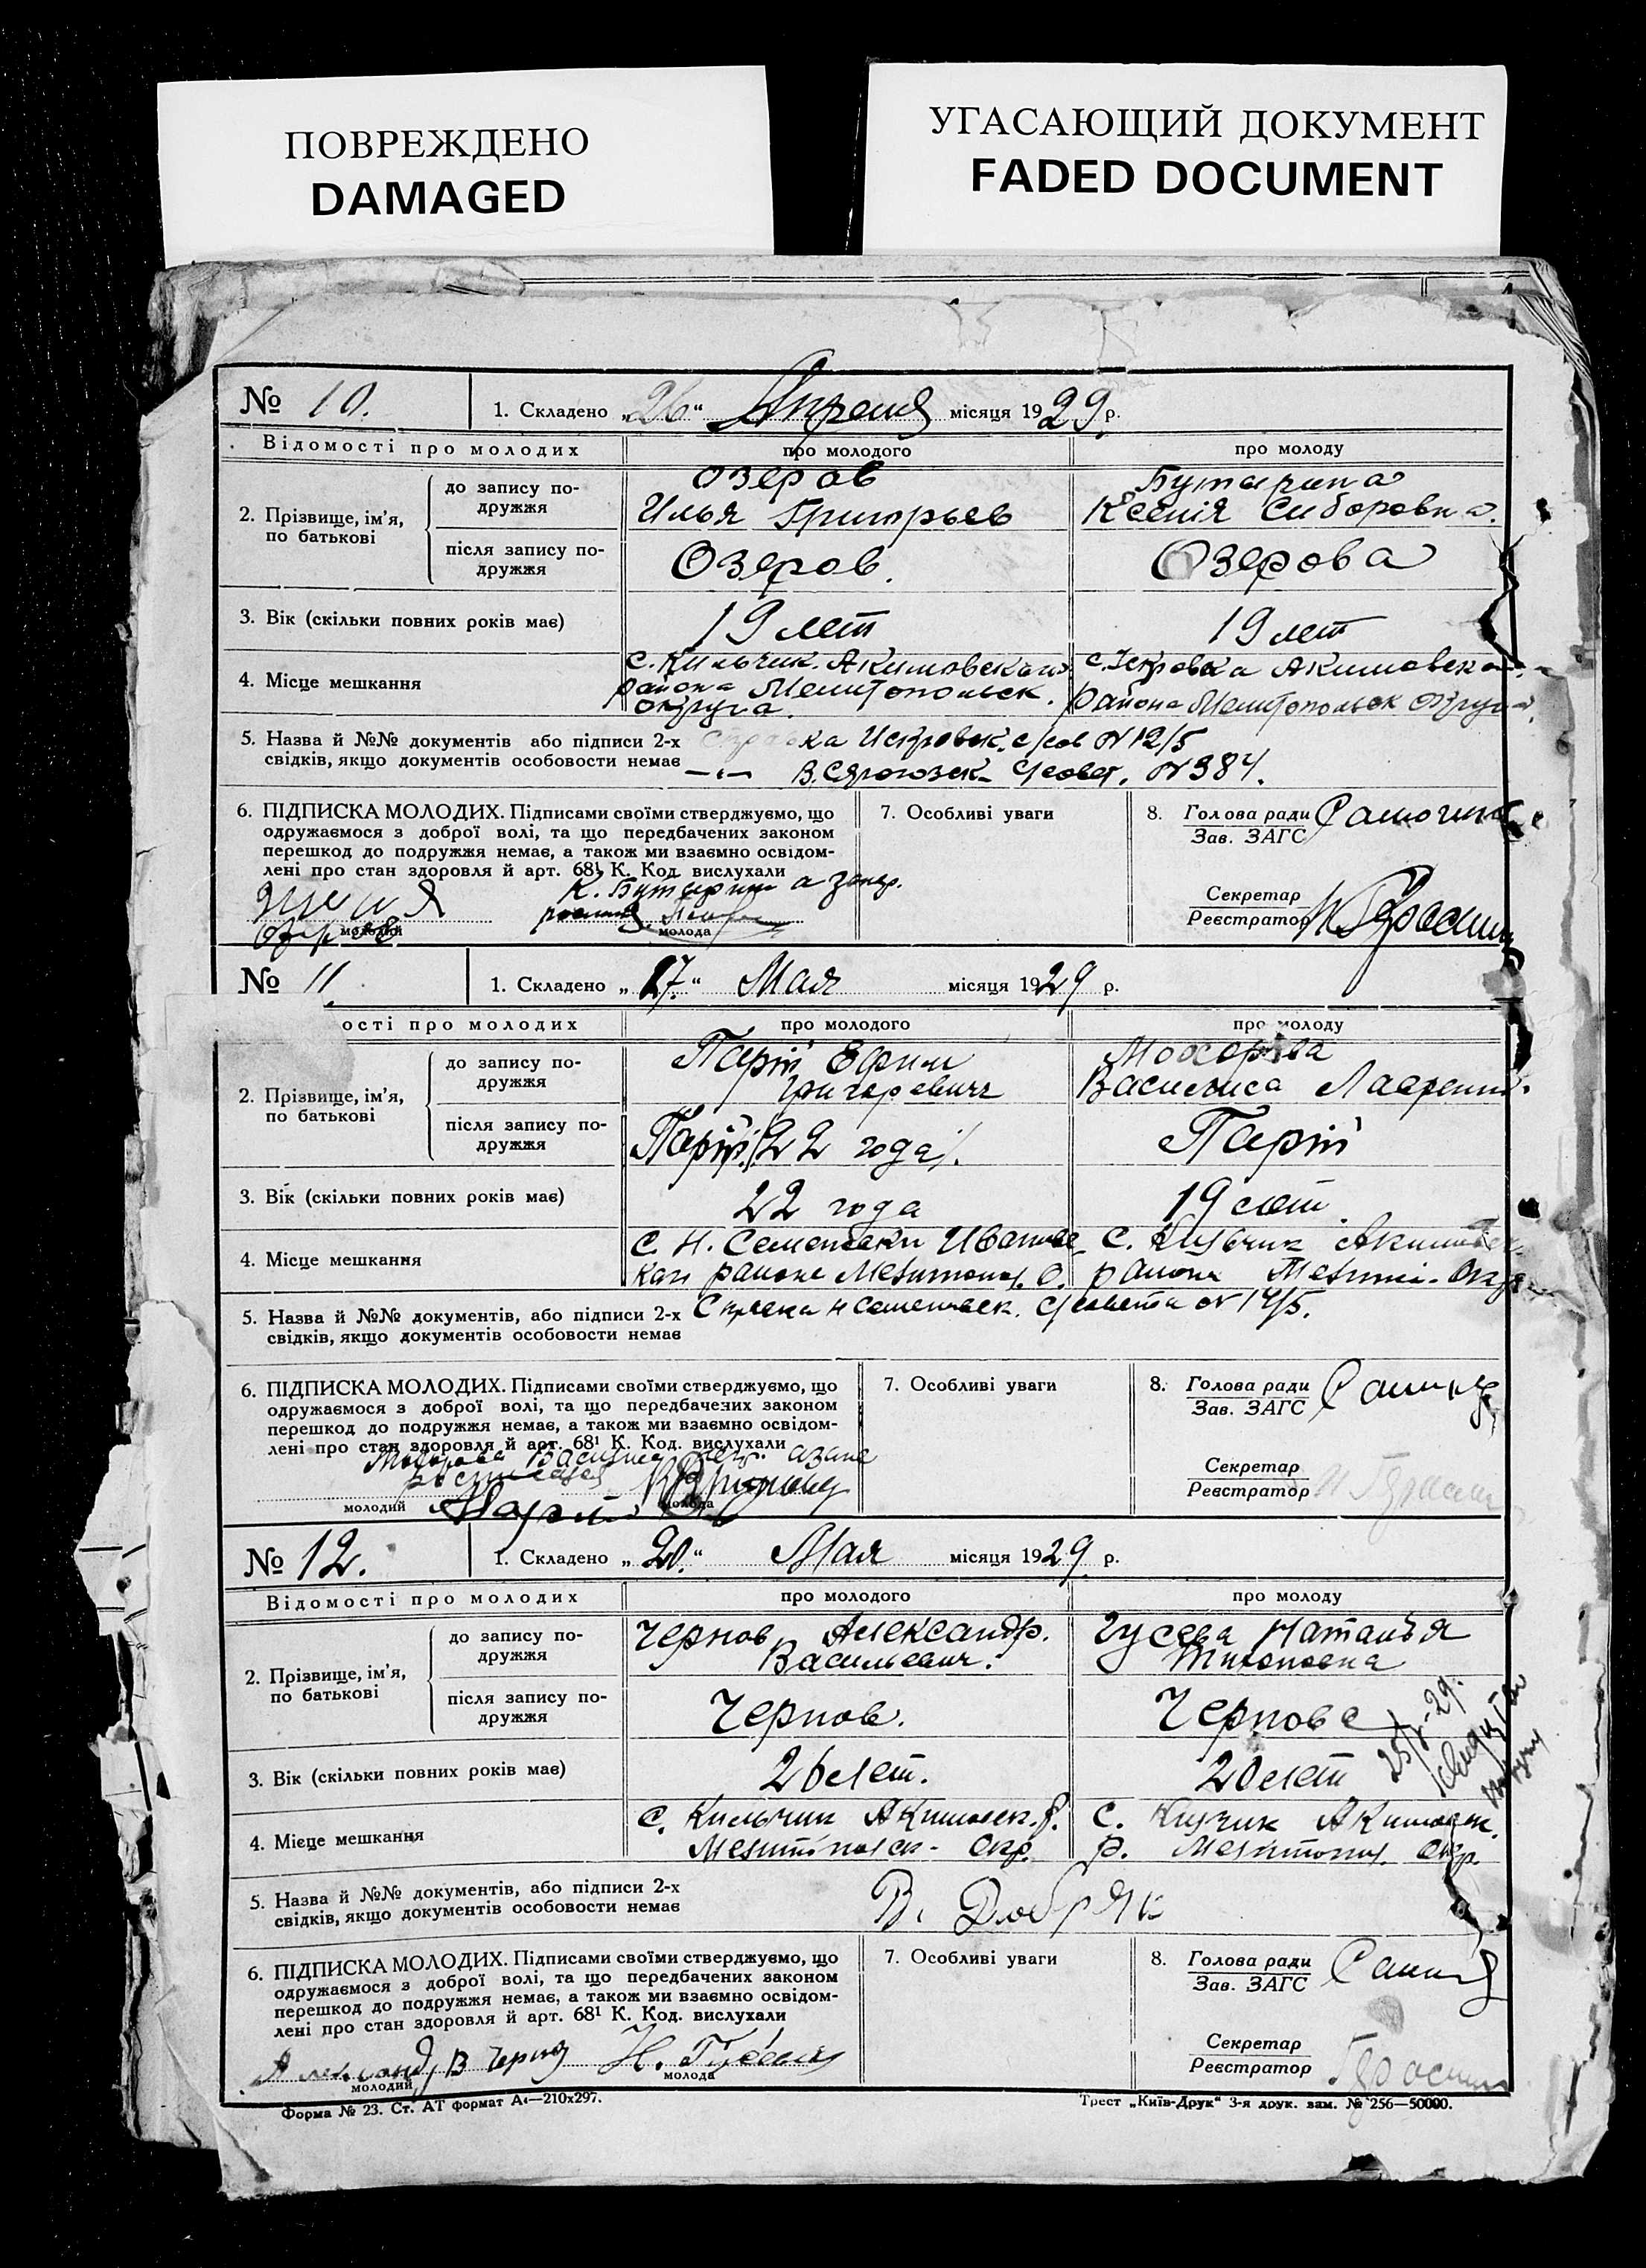 ПОВРЕЖДЕНО
DAMAGED
УГАСАЮЩИЙ ДОКУМЕНТ
FADED DOCUMENT
№ 10. 1. Складено „26“ Апреля місяця 1929 р.
Відомості про молодих про молодого про молоду
2. Прізвище, ім'я, по батькові
до запису подружжя
Озеров
Илья Григорьев
Бутырина
Ксенія Сидоровна.
після запису подружжя
Озеров.
Озерова
3. Вік (скільки повних років має) 19 лет 19 лет
4. Місце мешкання
с. Кильчик. Акимовского
района Мелитопольск.
округа.
с. Искровка Акимовско
района Мелитопольск округа
5. Назва й №№ документів або підписи 2-х
свідків, якщо документів особовости немає
Справка Искровск. с/сов № 12/5
—„— В. Серогозск. С/совет. № 384.
6. ПІДПИСКА МОЛОДИХ. Підписами своїми стверджуємо, що
одружаємося з доброї волі, та що передбачених законом
перешкод до подружжя немає, а також ми взаємно освідом-
лені про стан здоровля й арт. 68¹ К. Код. вислухали
К. Бутырина а за нер.
молодий молода
7. Особливі уваги
8. Голова ради
Зав. ЗАГС
Секретар
Реєстратор
№ 11. 1. Складено „17.“ Мая місяця 1929 р.
ості про молодих про молодого про молоду
2. Прізвище, ім'я, по батькові
до запису подружжя
Парій Ефим
Григоревичь
Василиса Лаврент.
після запису подружжя
Парій /22 года/.
Парій
3. Вік (скільки повних років має) 22 года 19 лет
4. Місце мешкання
с. Н. Семеновки
района Мелитопол. О.
с. Кильчик Акимовск.
района Мелит. Окр
5. Назва й №№ документів, або підписи 2-х
свідків, якщо документів особовости немає
С/совета № 14/5.
6. ПІДПИСКА МОЛОДИХ. Підписами своїми стверджуємо, що
одружаємося з доброї волі, та що передбачених законом
перешкод до подружжя немає, а також ми взаємно освідом-
лені про стан здоровля й арт. 68¹ К. Код. вислухали
молодий Парій молода
7. Особливі уваги
8. Голова ради
Зав. ЗАГС
Секретар
Реєстратор
№ 12. 1. Складено „20.“ Мая місяця 1929 р.
Відомості про молодих про молодого про молоду
2. Прізвище, ім'я, по батькові
до запису подружжя
Чернов Александр.
Васильевич.
Гусева Наталья
Тихоновна
після запису подружжя
Чернов.
Чернова
3. Вік (скільки повних років має) 26 лет. 20 лет
4. Місце мешкання
с. Кильчик Акимовск. р.
Мелитопольск. Окр.
с. Кильчик Акимовск.
р. Мелитопол. Окр.
5. Назва й №№ документів, або підписи 2-х
свідків, якщо документів особовости немає
В. Добряк
6. ПІДПИСКА МОЛОДИХ. Підписами своїми стверджуємо, що
одружаємося з доброї волі, та що передбачених законом
перешкод до подружжя немає, а також ми взаємно освідом-
лені про стан здоровля й арт. 68¹ К. Код. вислухали
Александр В Чернов Н. Гусева
молодий молода
7. Особливі уваги
8. Голова ради
Зав. ЗАГС
Секретар
Реєстратор
Форма № 23. Ст. АТ формат А4—210х297.
Трест „Київ-Друк“ 3-я друк. зам. № 256—50000.